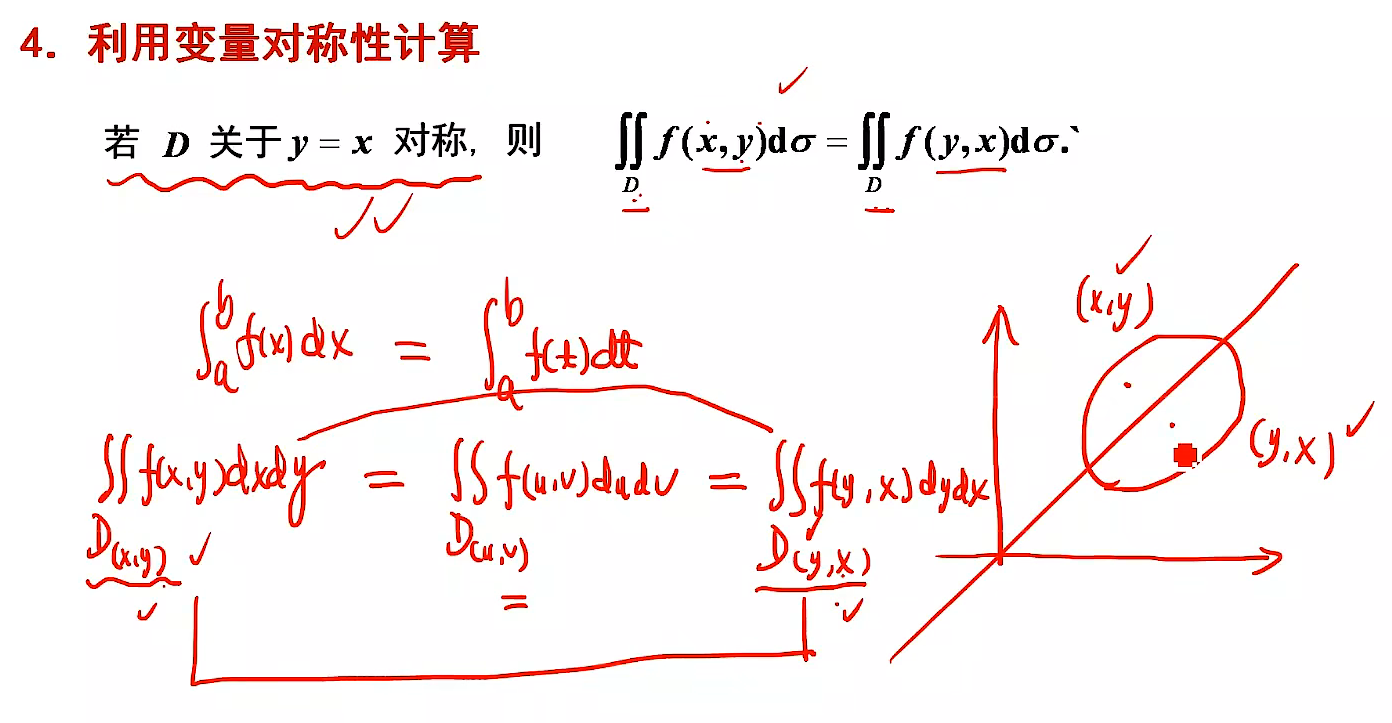 4. 利用变量对称性计算
若 D 关于 y = x 对称, 则 ∬_D f(x,y)dσ = ∬_D f(y,x)dσ.`
(x,y)
∫_a^b f(x)dx = ∫_a^b f(t)dt
(y,x)
∬_{D(x,y)} f(x,y)dxdy = ∬_{D(u,v)} f(u,v)dudv = ∬_{D(y,x)} f(y,x)dydx